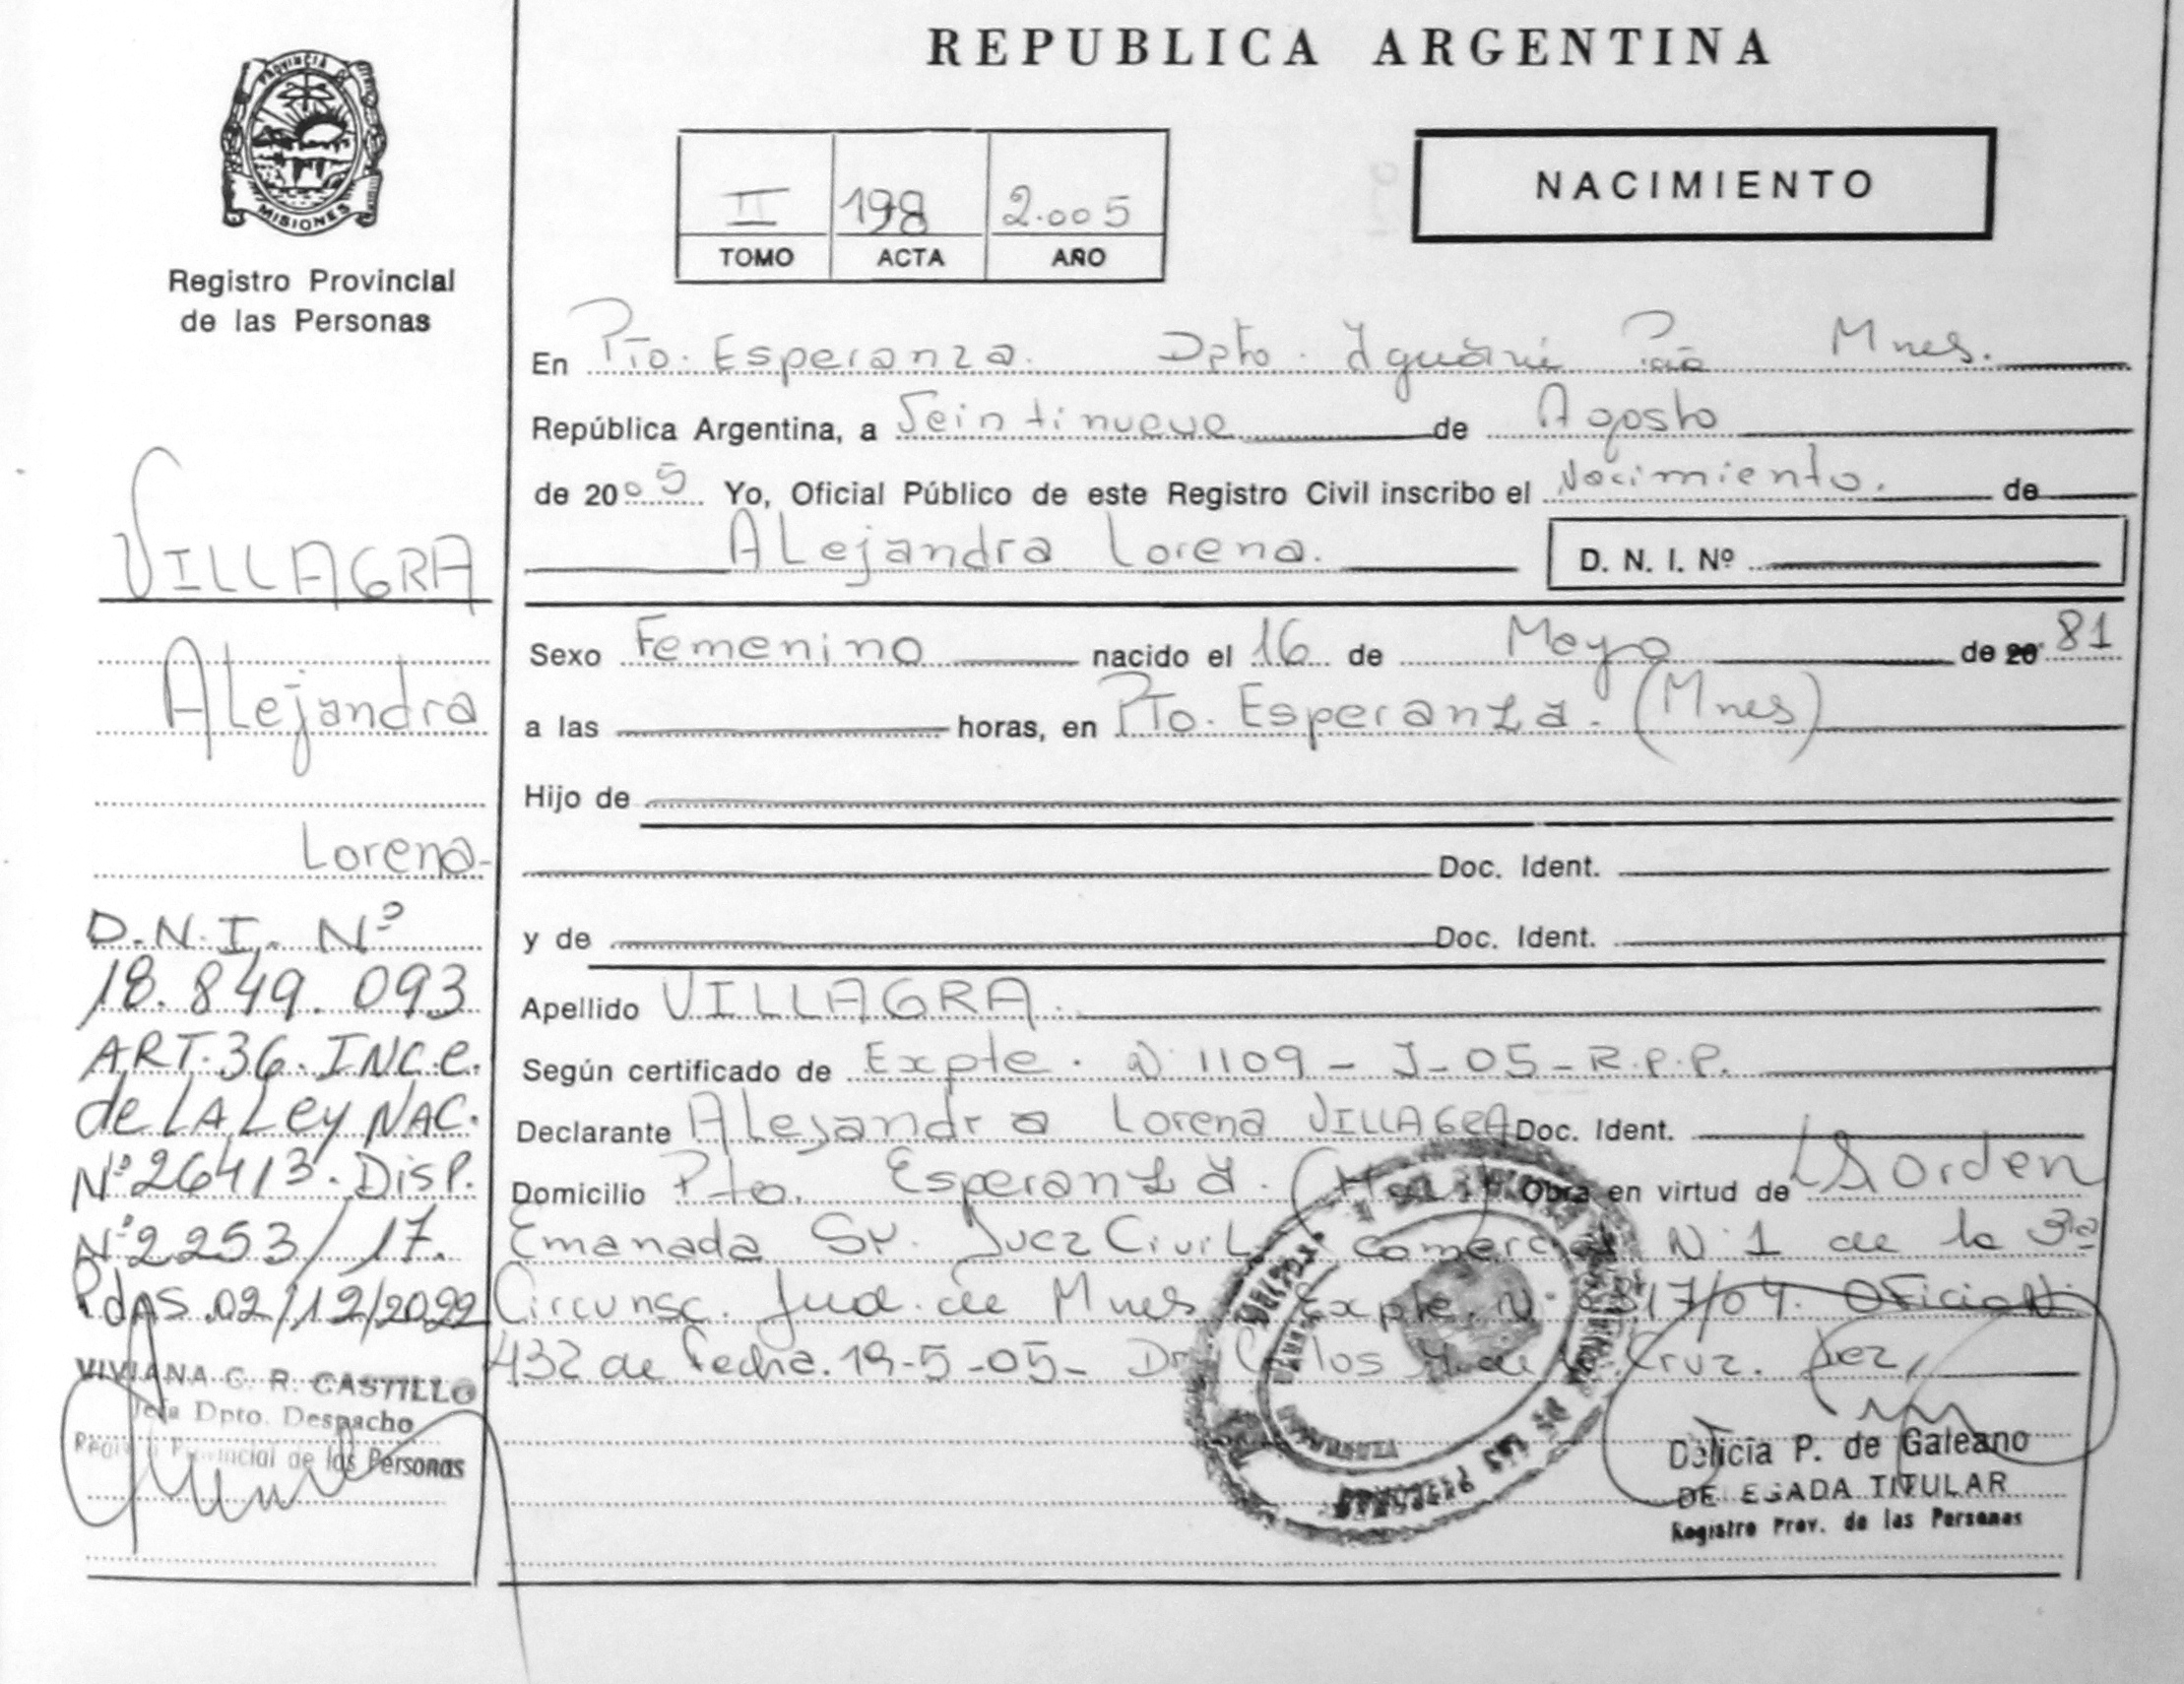 REPUBLICA ARGENTINA
PROVINCIA DE
MISIONES
Registro Provincial
de las Personas
II 198 2.005
TOMO ACTA AÑO
NACIMIENTO
En Pto. Esperanza. Dpto. Iguazú Mnes.
República Argentina, a Veintinueve de Agosto
de 2005 Yo, Oficial Público de este Registro Civil inscribo el Nacimiento. de
Alejandra Lorena. D. N. I. Nº
Sexo Femenino nacido el 16 de Mayo de 20 81
a las horas, en Pto. Esperanza. (Mnes)
Hijo de
Doc. Ident.
y de Doc. Ident.
Apellido VILLAGRA.
Según certificado de Expte. Nº 1109 - J - 05 - R.P.P.
Declarante Alejandra Lorena VILLAGRA Doc. Ident.
Domicilio Pto. Esperanza. Obra en virtud de la orden
Emanada Sr. Juez Civil Comercial Nº 1 de la 3ra
Circunsc. Jud. de Mnes Expte. Nº 17/04. Oficio Nº
432 de fecha. 19-5-05- Dr. Carlos de Cruz. Juez,
Delicia P. de Galeano
DELEGADA TITULAR
Registro Prov. de las Personas
VILLAGRA
Alejandra
Lorena-
D.N.I. Nº
18.849.093
ART.36.INC.e.
de LA Ley NAC.
Nº26413. Disp.
Nº2253/17.
Pdas.02/12/2022
VIVIANA G. R. CASTILLO
Jefa Dpto. Despacho
Registro Provincial de las Personas